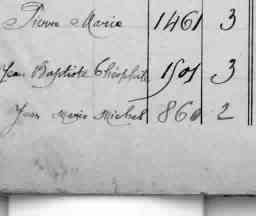 Pierre Marie 1461 3
Jean Baptiste Théophile 1501 3
Jean Marie Michel 860 2